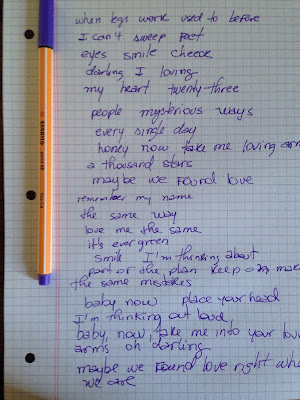 when legs work used to before
I can't sweep feet
eyes smile cheeck
darling I loving
my heart twenty-three
people mysterious ways
every single day
honey now take me loving arm
a thousand stars
maybe we found love
remember my name
the same way
love me the same
it's ever green
smile I'm thinking about
part of the plan keep on mak
the same mistakes
baby now place your head
I'm thinking out loud
baby, now, take me into your lov
arms oh darling
maybe we found love right whe
we are
STABILO